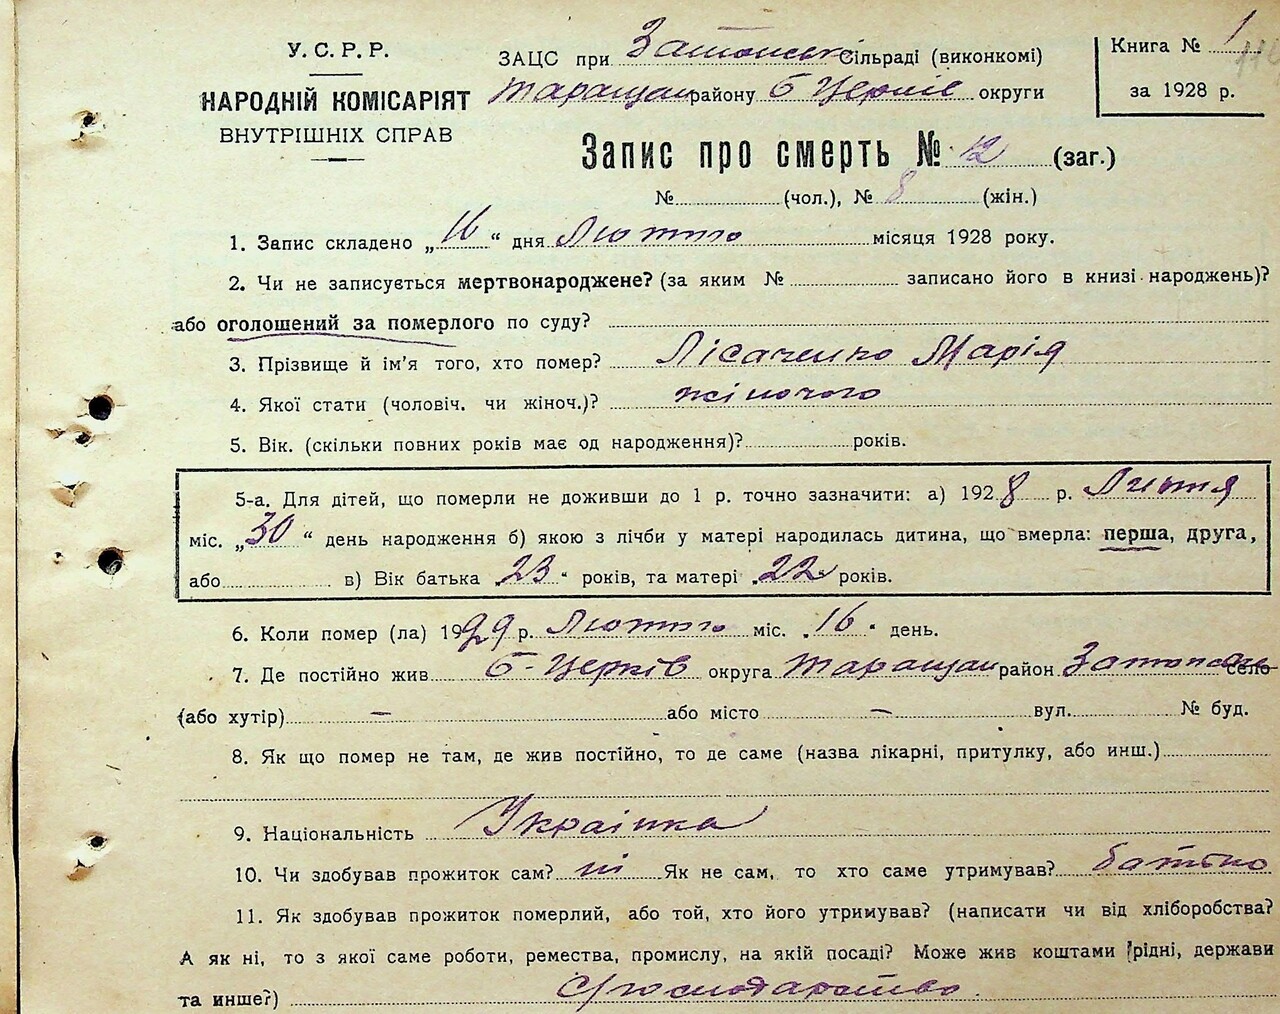 У.С.Р.Р.
НАРОДНІЙ КОМІСАРІЯТ
ВНУТРІШНІХ СПРАВ
ЗАЦС при Затонські Сільраді (виконкомі)
Таращан району Б Церків округи
Книга № 1
за 1928 р.
Запис про смерть № 12 (заг.)
№ (чол.), № 8 (жін.)
1. Запис складено „16“ дня Лютого місяця 1928 року.
2. Чи не записується мертвонароджене? (за яким № записано його в книзі народжень)?
або оголошений за померлого по суду?
3. Прізвище й ім'я того, хто помер? Лісаченко Марія
4. Якої стати (чоловіч. чи жіноч.)? жіночого
5. Вік. (скільки повних років має од народження)? років.
5-а. Для дітей, що померли не доживши до 1 р. точно зазначити: а) 1928 р.
міс. „30“ день народження б) якою з лічби у матері народилась дитина, що вмерла: перша, друга,
або в) Вік батька 23 років, та матері 22 років.
6. Коли помер (ла) 1929 р. Лютого міс. 16 день.
7. Де постійно жив Б-Церків округа Таращан район село
(або хутір) — або місто — вул. № буд.
8. Як що помер не там, де жив постійно, то де саме (назва лікарні, притулку, або инш.)
9. Національність Українка
10. Чи здобував прожиток сам? ні Як не сам, то хто саме утримував? батько
11. Як здобував прожиток померлий, або той, хто його утримував? (написати чи від хліборобства?
А як ні, то з якої саме роботи, ремества, промислу, на якій посаді? Може жив коштами рідні, держави
та инше?) С/господарство